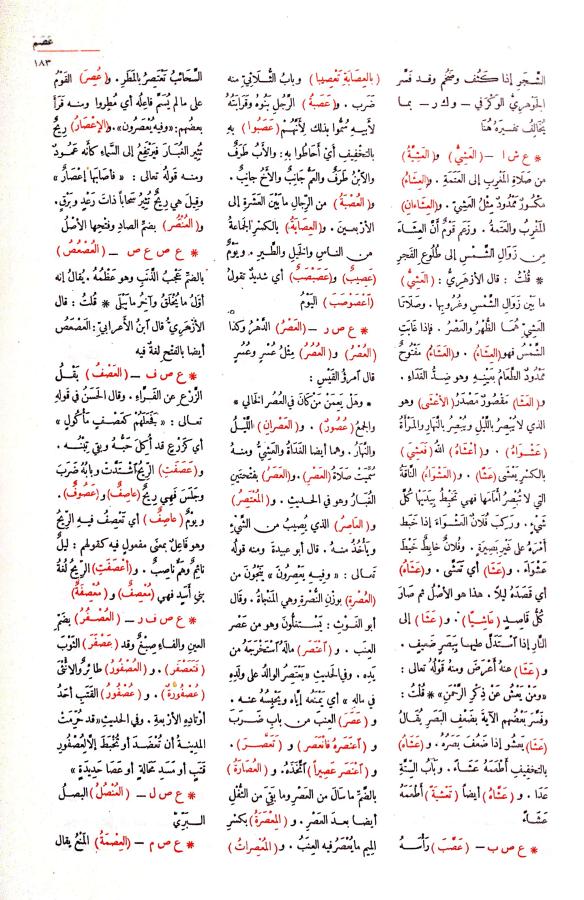 عصم
١٨٣
الشَّجَرِ إذا كَثُفَ وضَخُمَ وقد فَسَّر
الجوهَرِيُّ الوَكْرَ في – و ك ر – بما
يُخَالِفُ تفسِيرَهُ هُنَا
* ع ش ا – (العَشِيُّ) و(العَشِيَّةُ)
من صَلَاةِ المَغْرِبِ إلى العَتَمَةِ . و(العِشَاءُ)
مكسُورٌ ممْدُودٌ مثْلُ العَشِيِّ . و(العِشَاءانِ)
المَغْرِبُ والعَتَمَةُ . وزَعَم قَوْمٌ أنَّ العِشَاءَ
من زَوَالِ الشَّمْسِ إلى طُلُوعِ الفَجْرِ
* قُلْتُ : قال الأزهَرِيُّ : (العَشِيُّ)
ما بَيْنَ زَوَالِ الشَّمْسِ وغُرُوبِها . وصَلاتَا
العَشِيِّ هُمَا الظُّهْرُ والعَصْرُ . فإذا غابَتِ
الشَّمْسُ فهو (العِشَاءُ) . و(العَشَاءُ) مَفْتُوحٌ
ممْدُودٌ الطَّعَامُ بعَيْنِه وهو ضِدُّ الغَدَاءِ .
و(العَشَا) مَقْصُورٌ مَصْدَرُ (الأعْشَى) وهو
الذي لا يُبْصِرُ باللَّيْلِ ويُبْصِرُ بالنَّهَارِ والمَرْأةُ
(عَشْوَاءُ) . و(أعْشَاهُ) اللهُ (فَعَشِيَ)
بالكسر يَعْشَى (عَشًا) . و(العَشْوَاءُ) النَّاقَةُ
التي لا تُبْصِرُ أمَامَها فهي تَخْبِطُ بيَدَيْها كُلَّ
شَيْءٍ . ورَكِبَ فُلَانٌ العَشْوَاءَ إذا خَبَطَ
أمْرَهُ على غَيْرِ بَصِيرَةٍ . وفُلَانٌ خابِطٌ خَبْطَ
عَشْوَاءَ . و(عَشَا) أي تَعَشَّى . و(عَشَاهُ)
أي قَصَدَهُ لَيْلًا . هذا هو الأصْلُ ثم صَارَ
كُلُّ قاصِدٍ (عاشِيًا) . و(عَشَا) إلى
النَّارِ إذا اسْتَدَلَّ عليها ببَصَرٍ ضَعِيفٍ .
و(عَشَا) عنه أعْرَضَ ومنه قَوْلُه تعالى :
«ومَنْ يَعْشُ عَنْ ذِكْرِ الرَّحْمٰنِ» * قُلْتُ :
وفَسَّر بَعْضُهم الآيَةَ بضَعْفِ البَصَرِ يُقَالُ
(عَشَا) يَعْشُو إذا ضَعُفَ بَصَرُه . و(عَشَاهُ)
بالتخفيف أطْعَمَهُ عَشَاءً . وبابُ السِّتَّةِ
عَدَا . و(عَشَّاهُ) أيضاً (تَعْشِيَةً) أطْعَمَهُ
عَشَاءً
* ع ص ب – (عَصَّبَ) رَأسَــهُ
(بالعِصَابَةِ تَعْصِيبًا) وبابُ الثُّلَاثِيِّ منه
ضَرَب . و(عَصَبَةُ) الرَّجُلِ بَنُوهُ وقَرَابَتُهُ
لأبِيهِ سُمُّوا بذلك لِأنَّهُمْ (عَصَبُوا) به
بالتخفيف أيْ أحَاطُوا به : والأبُ طَرَفٌ
والابْنُ طَرَفٌ والعَمُّ جانِبٌ والأخُ جانِبٌ .
و(العُصْبَةُ) من الرِّجالِ ما بَيْنَ العَشَرَةِ إلى
الأرْبَعِين . و(العِصَابَةُ) بالكسر الجَمَاعَةُ
من الناسِ والخَيْلِ والطَّيْرِ . ويَوْمٌ
(عَصِيبٌ) و(عَصَبْصَبٌ) أي شَدِيدٌ تقولُ
(اعْصَوْصَبَ) اليَوْمُ
* ع ص ر – (العَصْرُ) الدَّهْرُ وكذا
(العُصْرُ) و(العُصُرُ) مِثْلُ عُسْرٍ وعُسُرٍ
قال امرؤُ القَيْسِ :
* وهَلْ يَعِمَنْ مَنْ كَانَ في العُصُرِ الخَالي *
والجمعُ (عُصُورٌ) . و(العَصْرانِ) اللَّيْلُ
والنَّهَارُ . وهما أيضا الغَدَاةُ والعَشِيُّ ومنهُ
سُمِّيَتْ صَلاةُ (العَصْرِ) . و(العَصَرُ) بفتحتين
الغُبَارُ وهو في الحديثِ . و(المُعْتَصِرُ)
و(العاصِرُ) الذي يُصِيبُ من الشَّيْءِ
ويأخُذُ منــهُ . قال أبو عبيدة ومنه قولُه
تعالى : «وفيهِ يَعْصِرُونَ» يَنْجُونَ من
(العُصْرَةِ) بوَزْنِ النُّصْرَةِ وهي المَنْجَاةُ . وقال
أبو الغَوْثِ : يَسْتَغِلُّونَ وهو من عَصْرِ
العِنَبِ . و(اعْتَصَرَ) مالَهُ اسْتَخْرَجَهُ من
يَدِه . وفي الحديثِ «يَعْتَصِرُ الوالِدُ على ولَدِهِ
في مالِه» أي يَمْنَعُه إيَّاه ويَحْبِسُه عنــه .
و(عَصَرَ) العِنَبَ من بابِ ضَرَبَ
و(اعْتَصَرَهُ فانْعَصَرَ) و(تَعَصَّــرَ) .
و(اعْتَصَرَ عَصِيرًا) اتَّخَذَهُ . و(العُصَارَةُ)
بالضَّمِّ ما سَالَ من العَصْرِ وما بَقِيَ من الثُّفْلِ
أيضا بعدَ العَصْرِ . و(المِعْصَرَةُ) بكسر
الميم ما يُعْصَرُ فيه العِنَبُ . و(المُعْصِرَاتُ)
السَّحَائِبُ تَعْتَصِرُ بالمَطَرِ . و(عُصِرَ) القَوْمُ
على ما لم يُسَمَّ فاعِلُهُ أي مُطِرُوا ومنه قرأ
بعضُهم : «وفيه يُعْصَرُونَ» . و(الإعْصَارُ) رِيحٌ
تُثِيرُ الغُبَارَ فيَرْتَفِعُ إلى السَّمَاءِ كأنَّه عَمُودٌ
ومنه قولُهُ تعالى : «فأصَابَها إعْصَارٌ»
وقيلَ هي رِيحٌ تُثِيرُ سَحَابًا ذاتَ رَعْدٍ وبَرْقٍ .
و(العُنْصُرُ) بضم الصادِ وفتحِها الأصْلُ
* ع ص ع ص – (العُصْعُصُ)
بالضم عَجْبُ الذَّنَبِ وهو عَظْمُهُ . يُقالُ إنه
أوَّلُ ما يُخْلَقُ وآخِرُ ما يَبْلَى * قُلْتُ : قال
الأزْهَرِيُّ قال ابنُ الأعرابيّ : العَصْعَصُ
أيضا بالفتح لُغَةٌ فيه
* ع ص ف – (العَصْفُ) بَقْــلُ
الزَّرْعِ عن الفَرَّاءِ . وقال الحَسَنُ في قولِهِ
تعــالى : «فجعَلَهُم كعَصْفٍ مأْكُولٍ»
أي كَزَرْعٍ قد أُكِلَ حَبُّهُ وبَقِيَ تِبْنُــه .
و(عَصَفَتِ) الرِّيحُ اشْتَدَّتْ وبابُهُ ضَرَبَ
وجَلَسَ فهي رِيحٌ (عاصِفٌ) و(عَصُوفٌ) .
ويَوْمٌ (عاصِفٌ) أي تَعْصِفُ فيــهِ الرِّيحُ
وهو فاعِلٌ بمعنى مفعولٍ فيه كقولهم : لَيْلٌ
نائِمٌ وهَمٌّ ناصِبٌ . و(أعْصَفَتِ) الرِّيحُ لُغَةُ
بني أسَدٍ فهي (مُعْصِفٌ) و(مُعْصِفَةٌ)
* ع ص ف ر – (العُصْفُرُ) بضَمِّ
العينِ والفــاءِ صِبْغٌ وقد (عَصْفَرَ) الثَّوْبَ
(فتَعَصْفَرَ) . و(العُصْفُورُ) طائِرٌ والأنْثَى
(عُصْفُورَةٌ) . و(عُصْفُورُ) القَتَبِ أحَدُ
أوْتادِهِ الأرْبَعةِ . وفي الحديثِ «قد حُرِّمَتِ
المَدِينَةُ أن تُعْضَدَ أو تُخْبَطَ إلّا لِعُصْفُورِ
قَتَبٍ أو مَسَدِ مَحَالَةٍ أو عَصَا حَدِيدَةٍ»
* ع ص ل – (العُنْصُلُ) البَصَلُ
البَــرِّيُّ
* ع ص م – (العِصْمَةُ) المَنْعُ يقال